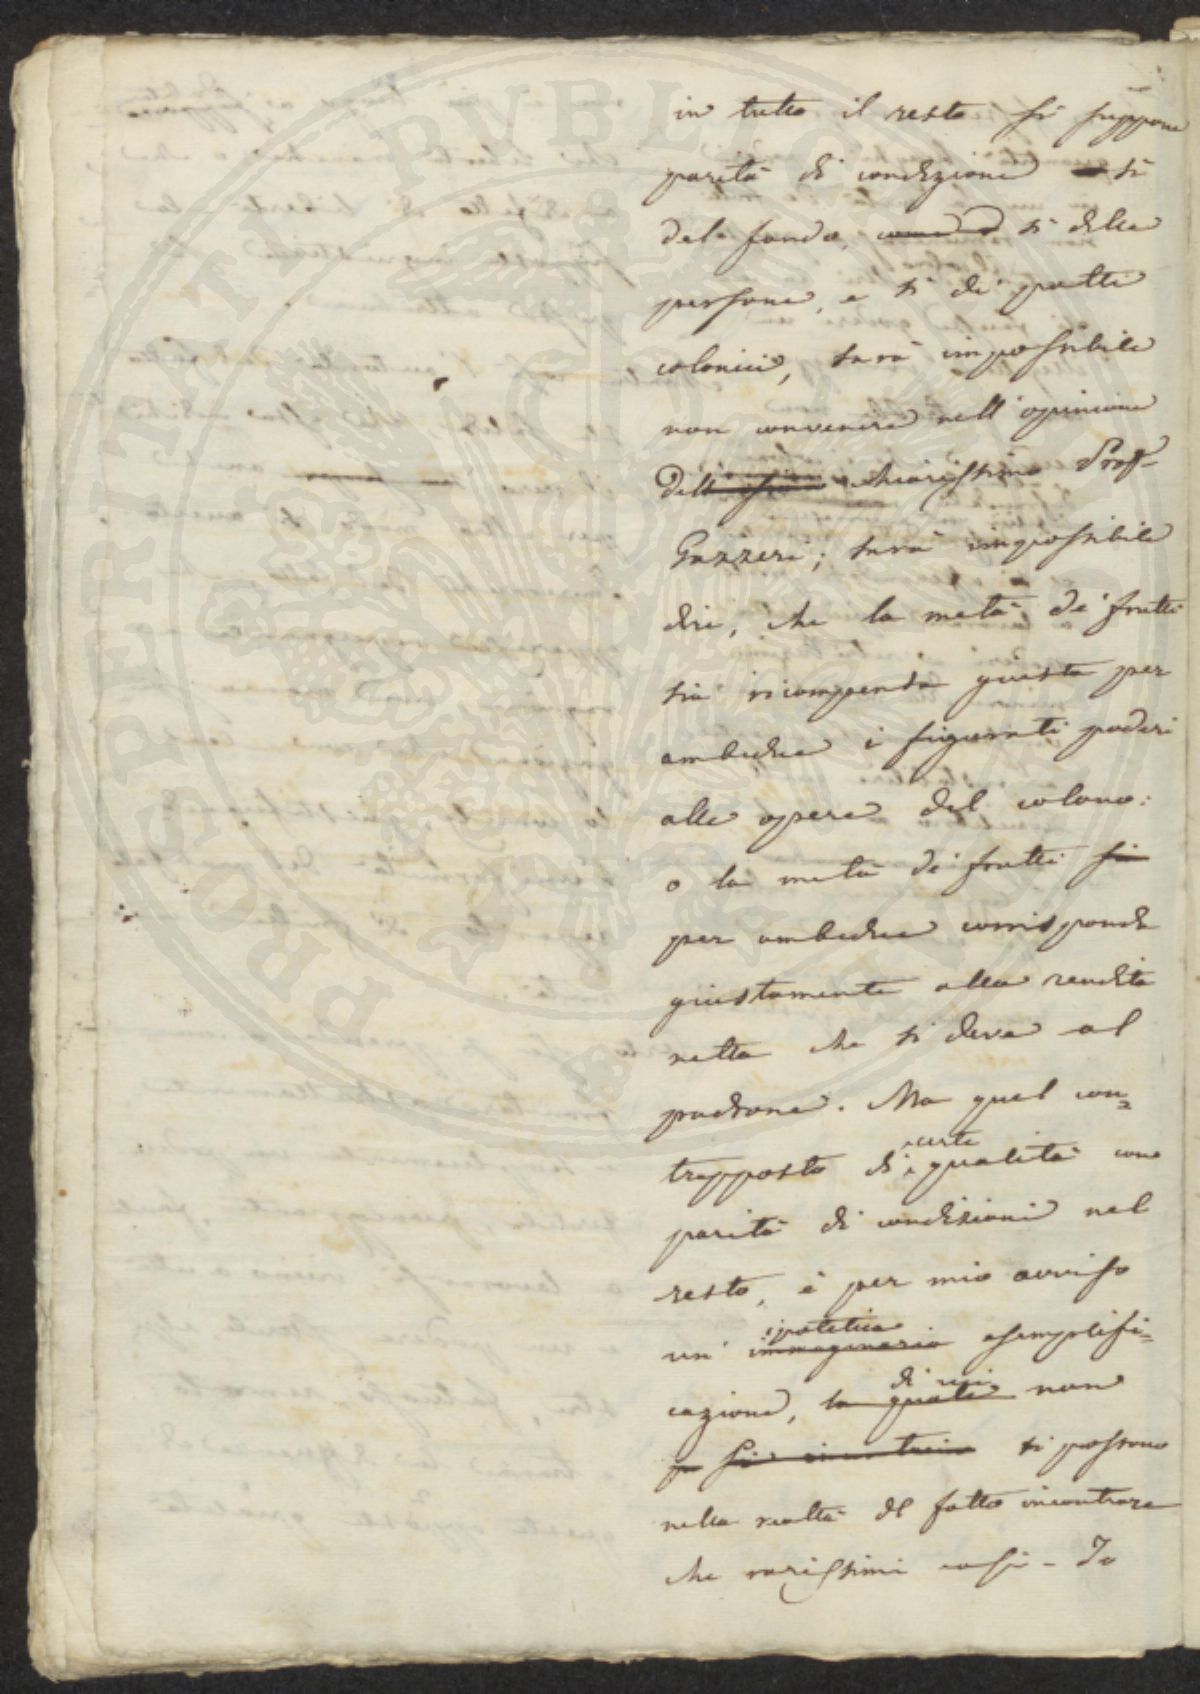 in tutto il resto si suppone
parità di condizione sì
del fondo, come sì delle
persone, e sì de' patti
colonici, sarà impossibile
non convenire nell'opinione
dell chiarissimo Prof.
Gazzeri; sarà impossibile
dire, che la metà de' frutti
sia ricompensa giusta per
ambedue i figurati poderi
alle opere del colono:
o la metà de' frutti sia
per ambedue corrisponda
giustamente alla rendita
netta che si deve al
padrone. Ma quel con=
trapposto di certe qualità con
parità di condizioni nel
resto, è per mio avviso
un' immaginaria ipotetica esemplifi=
cazione, la quale di cui non
si possono
nella realtà del fatto incontrare
che rarissimi casi - Io
PROSPERITATI PVBLICAE